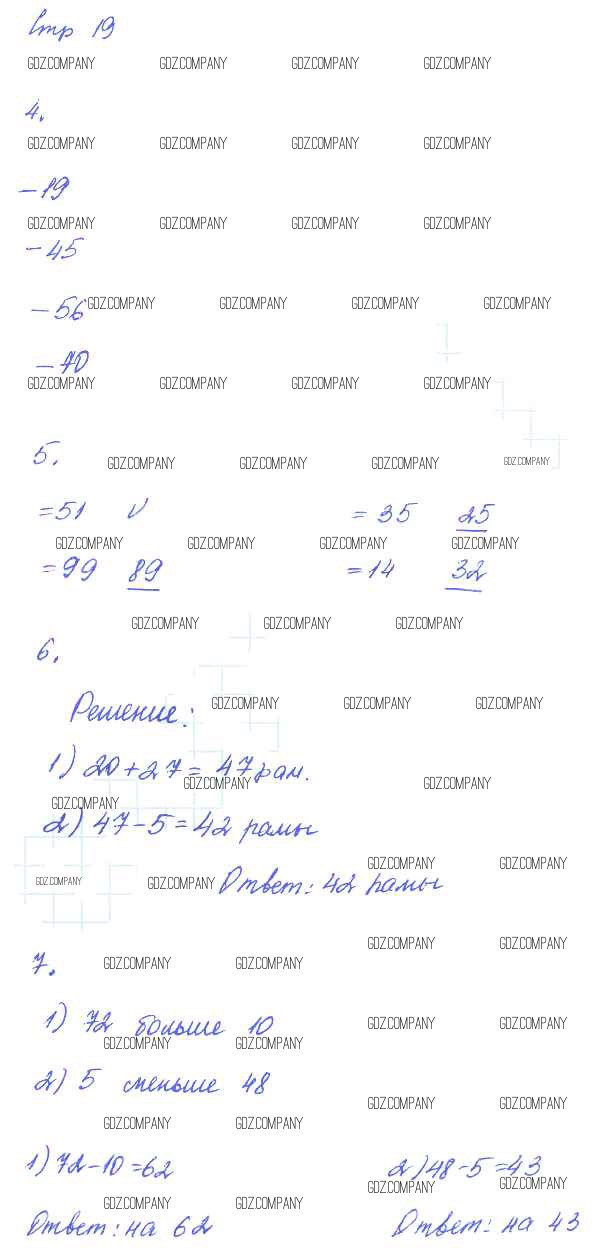 Стр 19
GDZ.COMPANY GDZ.COMPANY GDZ.COMPANY GDZ.COMPANY
4.
GDZ.COMPANY GDZ.COMPANY GDZ.COMPANY GDZ.COMPANY
-19
GDZ.COMPANY GDZ.COMPANY GDZ.COMPANY GDZ.COMPANY
-45
-56 GDZ.COMPANY GDZ.COMPANY GDZ.COMPANY GDZ.COMPANY
-70
GDZ.COMPANY GDZ.COMPANY GDZ.COMPANY GDZ.COMPANY
5. GDZ.COMPANY GDZ.COMPANY GDZ.COMPANY GDZ.COMPANY
=51 V =35 25
GDZ.COMPANY GDZ.COMPANY GDZ.COMPANY GDZ.COMPANY
=99 89 =14 32
GDZ.COMPANY GDZ.COMPANY GDZ.COMPANY
6.
Решение: GDZ.COMPANY GDZ.COMPANY GDZ.COMPANY
1) 20+27= 47 рам.
GDZ.COMPANY GDZ.COMPANY
GDZ.COMPANY
2) 47-5=42 рамы
GDZ.COMPANY GDZ.COMPANY
GDZ.COMPANY GDZ.COMPANY Ответ: 42 рамы
GDZ.COMPANY GDZ.COMPANY
7. GDZ.COMPANY GDZ.COMPANY
1) 72 больше 10 GDZ.COMPANY GDZ.COMPANY
GDZ.COMPANY GDZ.COMPANY
2) 5 меньше 48
GDZ.COMPANY GDZ.COMPANY
GDZ.COMPANY GDZ.COMPANY
1) 72-10=62 2) 48-5=43
GDZ.COMPANY GDZ.COMPANY
GDZ.COMPANY GDZ.COMPANY
Ответ: на 62 Ответ: на 43